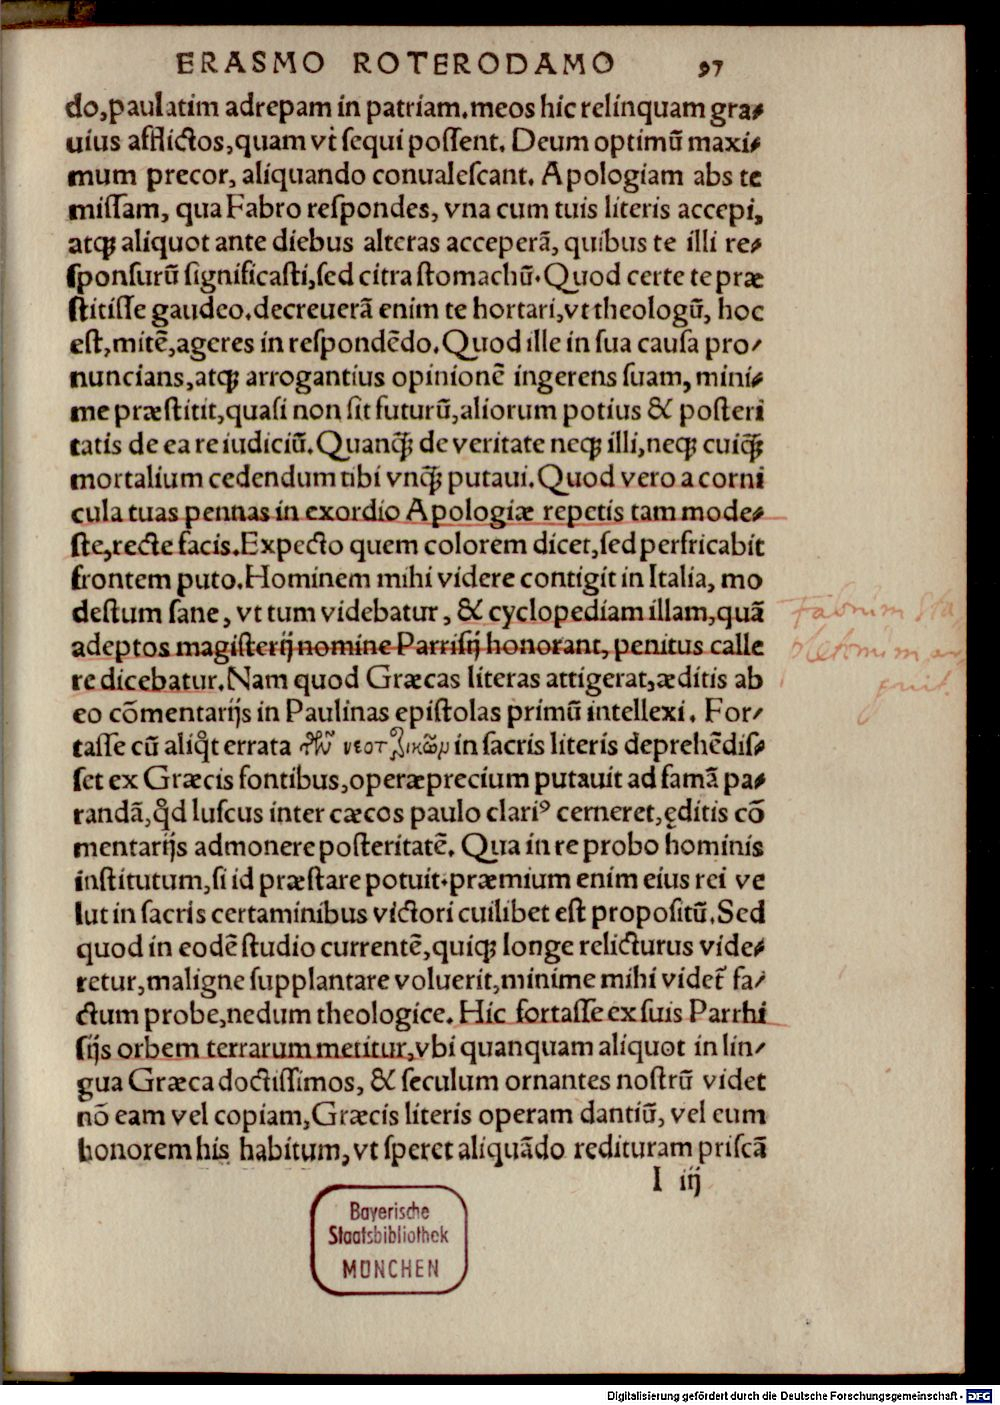 ERASMO ROTERODAMO 97
do,paulatim adrepam in patriam.meos hic relinquam gra⸗
uius afflictos,quam vt sequi possent. Deum optimū maxi⸗
mum precor, aliquando conualescant. Apologiam abs te
missam, qua Fabro respondes, vna cum tuis literis accepi,
atqꝫ aliquot ante diebus alteras acceperā, quibus te illi re⸗
sponsurū significasti,sed citra stomachū.Quod certe te præ
stitisse gaudeo.decreuerā enim te hortari,vt theologū, hoc
est,mitē,ageres in respondēdo.Quod ille in sua causa pro⸗
nuncians,atqꝫ arrogantius opinionē ingerens suam, mini⸗
me præstitit,quasi non sit futurū,aliorum potius & posteri
tatis de ea re iudiciū.Quanqꝫ̄ de veritate neqꝫ illi,neqꝫ cuiqꝫ̄
mortalium cedendum tibi vnqꝫ̄ putaui.Quod vero a corni
cula tuas pennas in exordio Apologiæ repetis tam mode⸗
ste,recte facis.Expecto quem colorem dicet,sed perfricabit
frontem puto.Hominem mihi videre contigit in Italia, mo
destum sane, vt tum videbatur, & cyclopediam illam,quā
adeptos magisterij nomine Parrisij honorant, penitus calle
re dicebatur.Nam quod Græcas literas attigerat,æditis ab
eo cōmentarijs in Paulinas epistolas primū intellexi. For⸗
tasse cū aliqͥt errata in sacris literis deprehēdis⸗
set ex Græcis fontibus,operæprecium putauit ad famā pa⸗
randā,qͥd luscus inter cæcos paulo clariꝰ cerneret,ęditis cō
mentarijs admonere posteritatē. Qua in re probo hominis
institutum,si id præstare potuit.præmium enim eius rei ve
lut in sacris certaminibus victori cuilibet est propositū.Sed
quod in eodē studio currentē,quiqꝫ longe relicturus vide⸗
retur,maligne supplantare voluerit,minime mihi videt̄ fa⸗
ctum probe,nedum theologice. Hic fortasse ex suis Parrhi
sijs orbem terrarum metitur,vbi quanquam aliquot in lin⸗
gua Græca doctissimos, & seculum ornantes nostrū videt
nō eam vel copiam,Græcis literis operam dantiū, vel eum
honorem his habitum, vt speret aliquādo redituram priscā
I iij
Fabrum Sta
Bayerische
Staatsbibliothek
MÜNCHEN
Digitalisierung gefördert durch die Deutsche Forschungsgemeinschaft - DFG